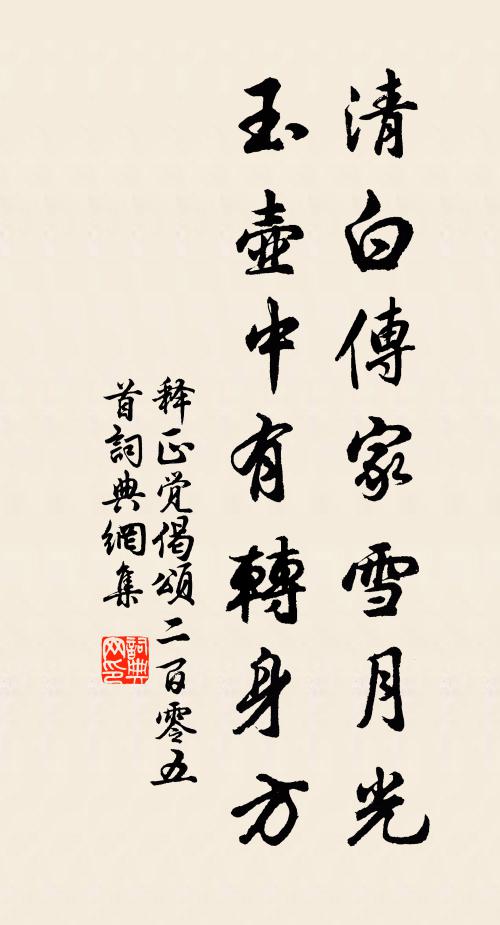 清白傳家雪月光
玉壺中有轉身方
释正觉偈頌二百零五
首詞典網集
詞典網印